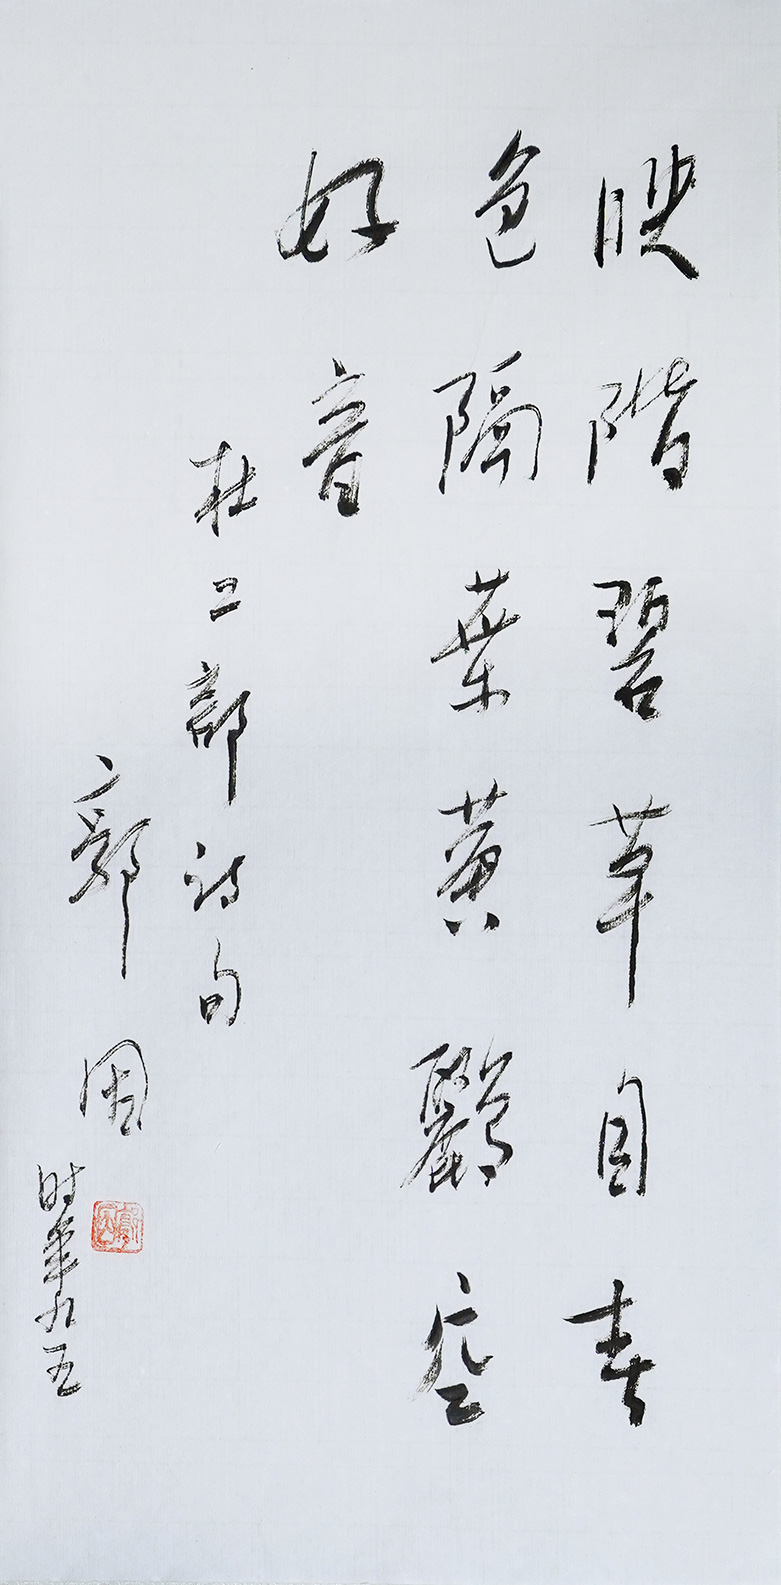 映階碧草自春
色隔葉黃鸝空
好音
杜工部詩句
郭因
时年九五
郭因